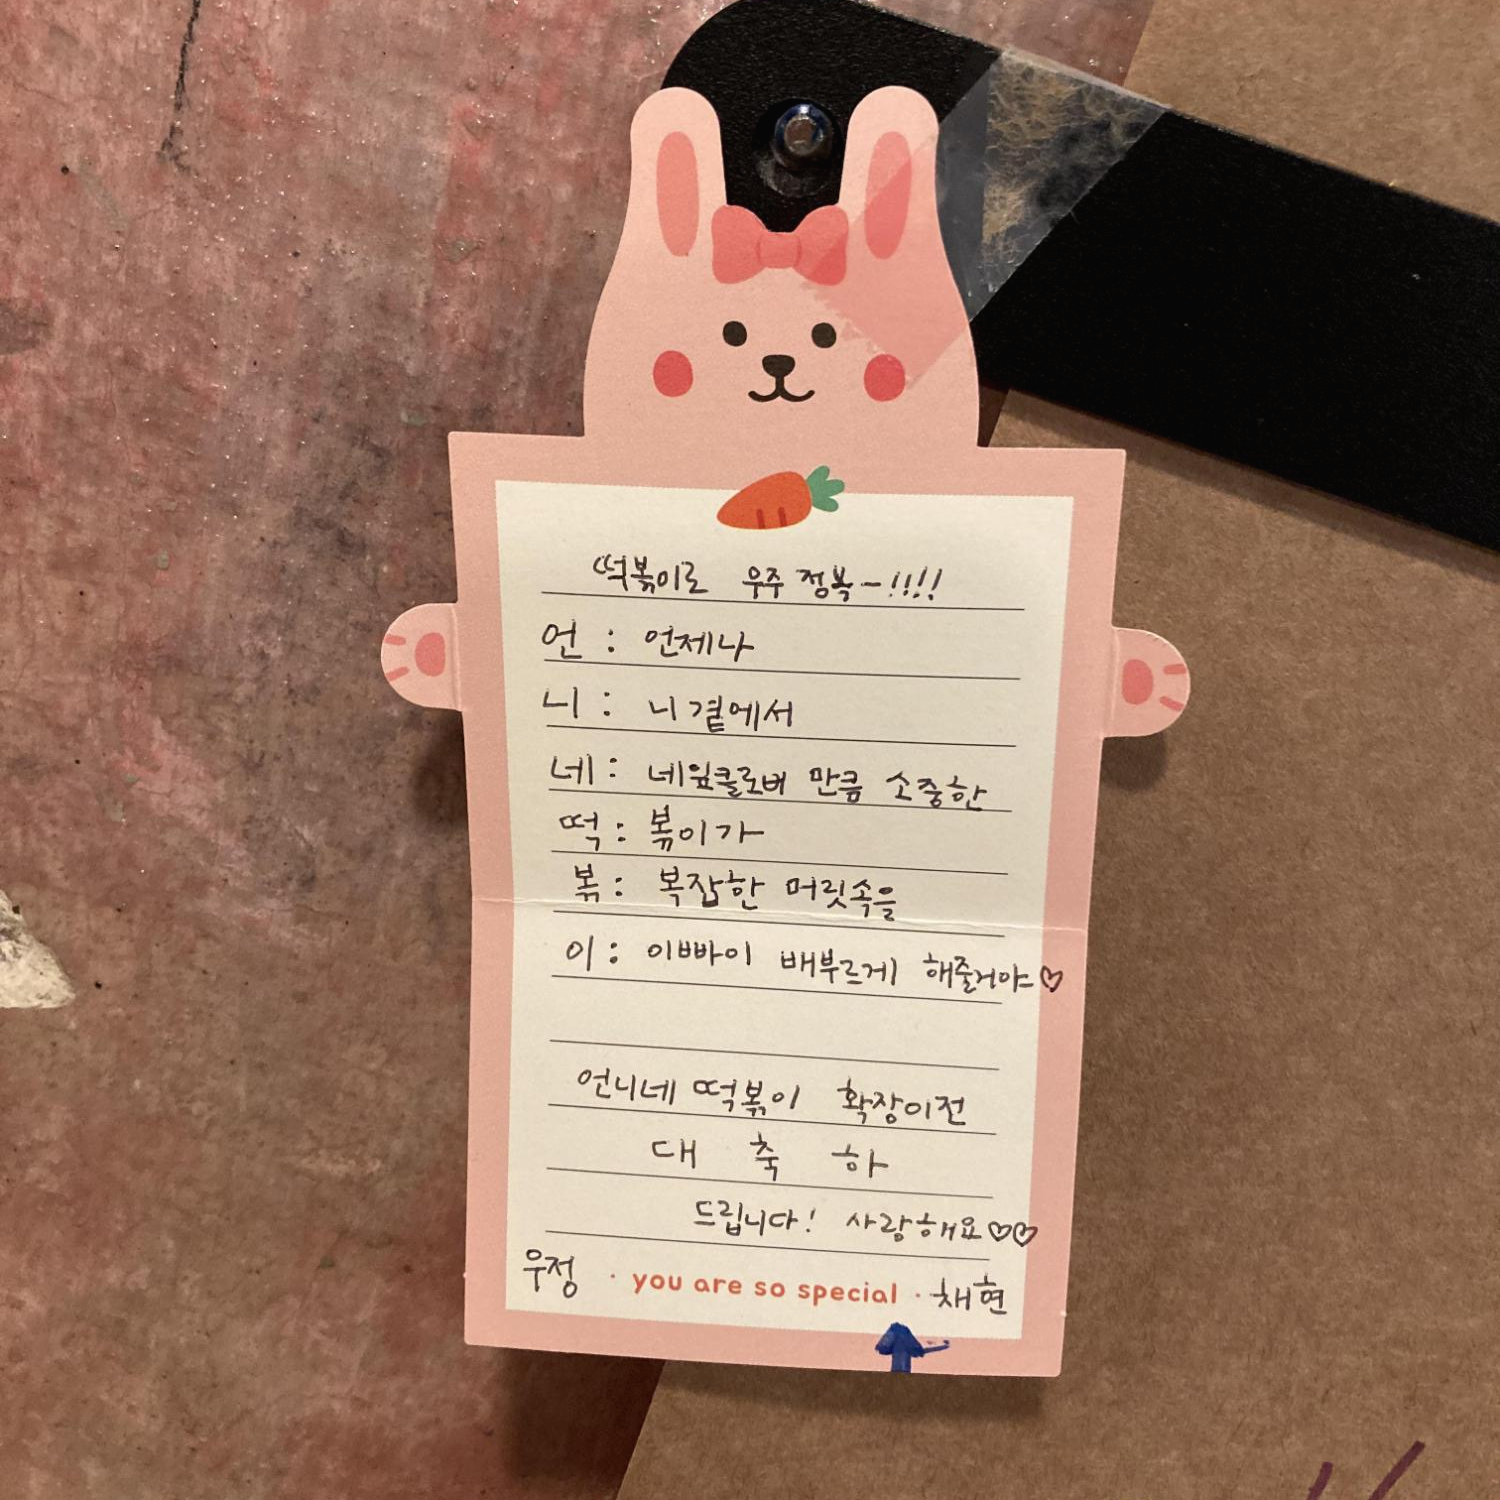 떡볶이로 우주 정복-!!!!
언 : 언제나
니 : 니 곁에서
네 : 네잎클로버 만큼 소중한
떡 : 볶이가
볶 : 복잡한 머릿속을
이 : 이빠이 배부르게 해줄거야♡
언니네 떡볶이 확장이전
대 축 하
드립니다! 사랑해요♡♡
우정 · you are so special · 채현